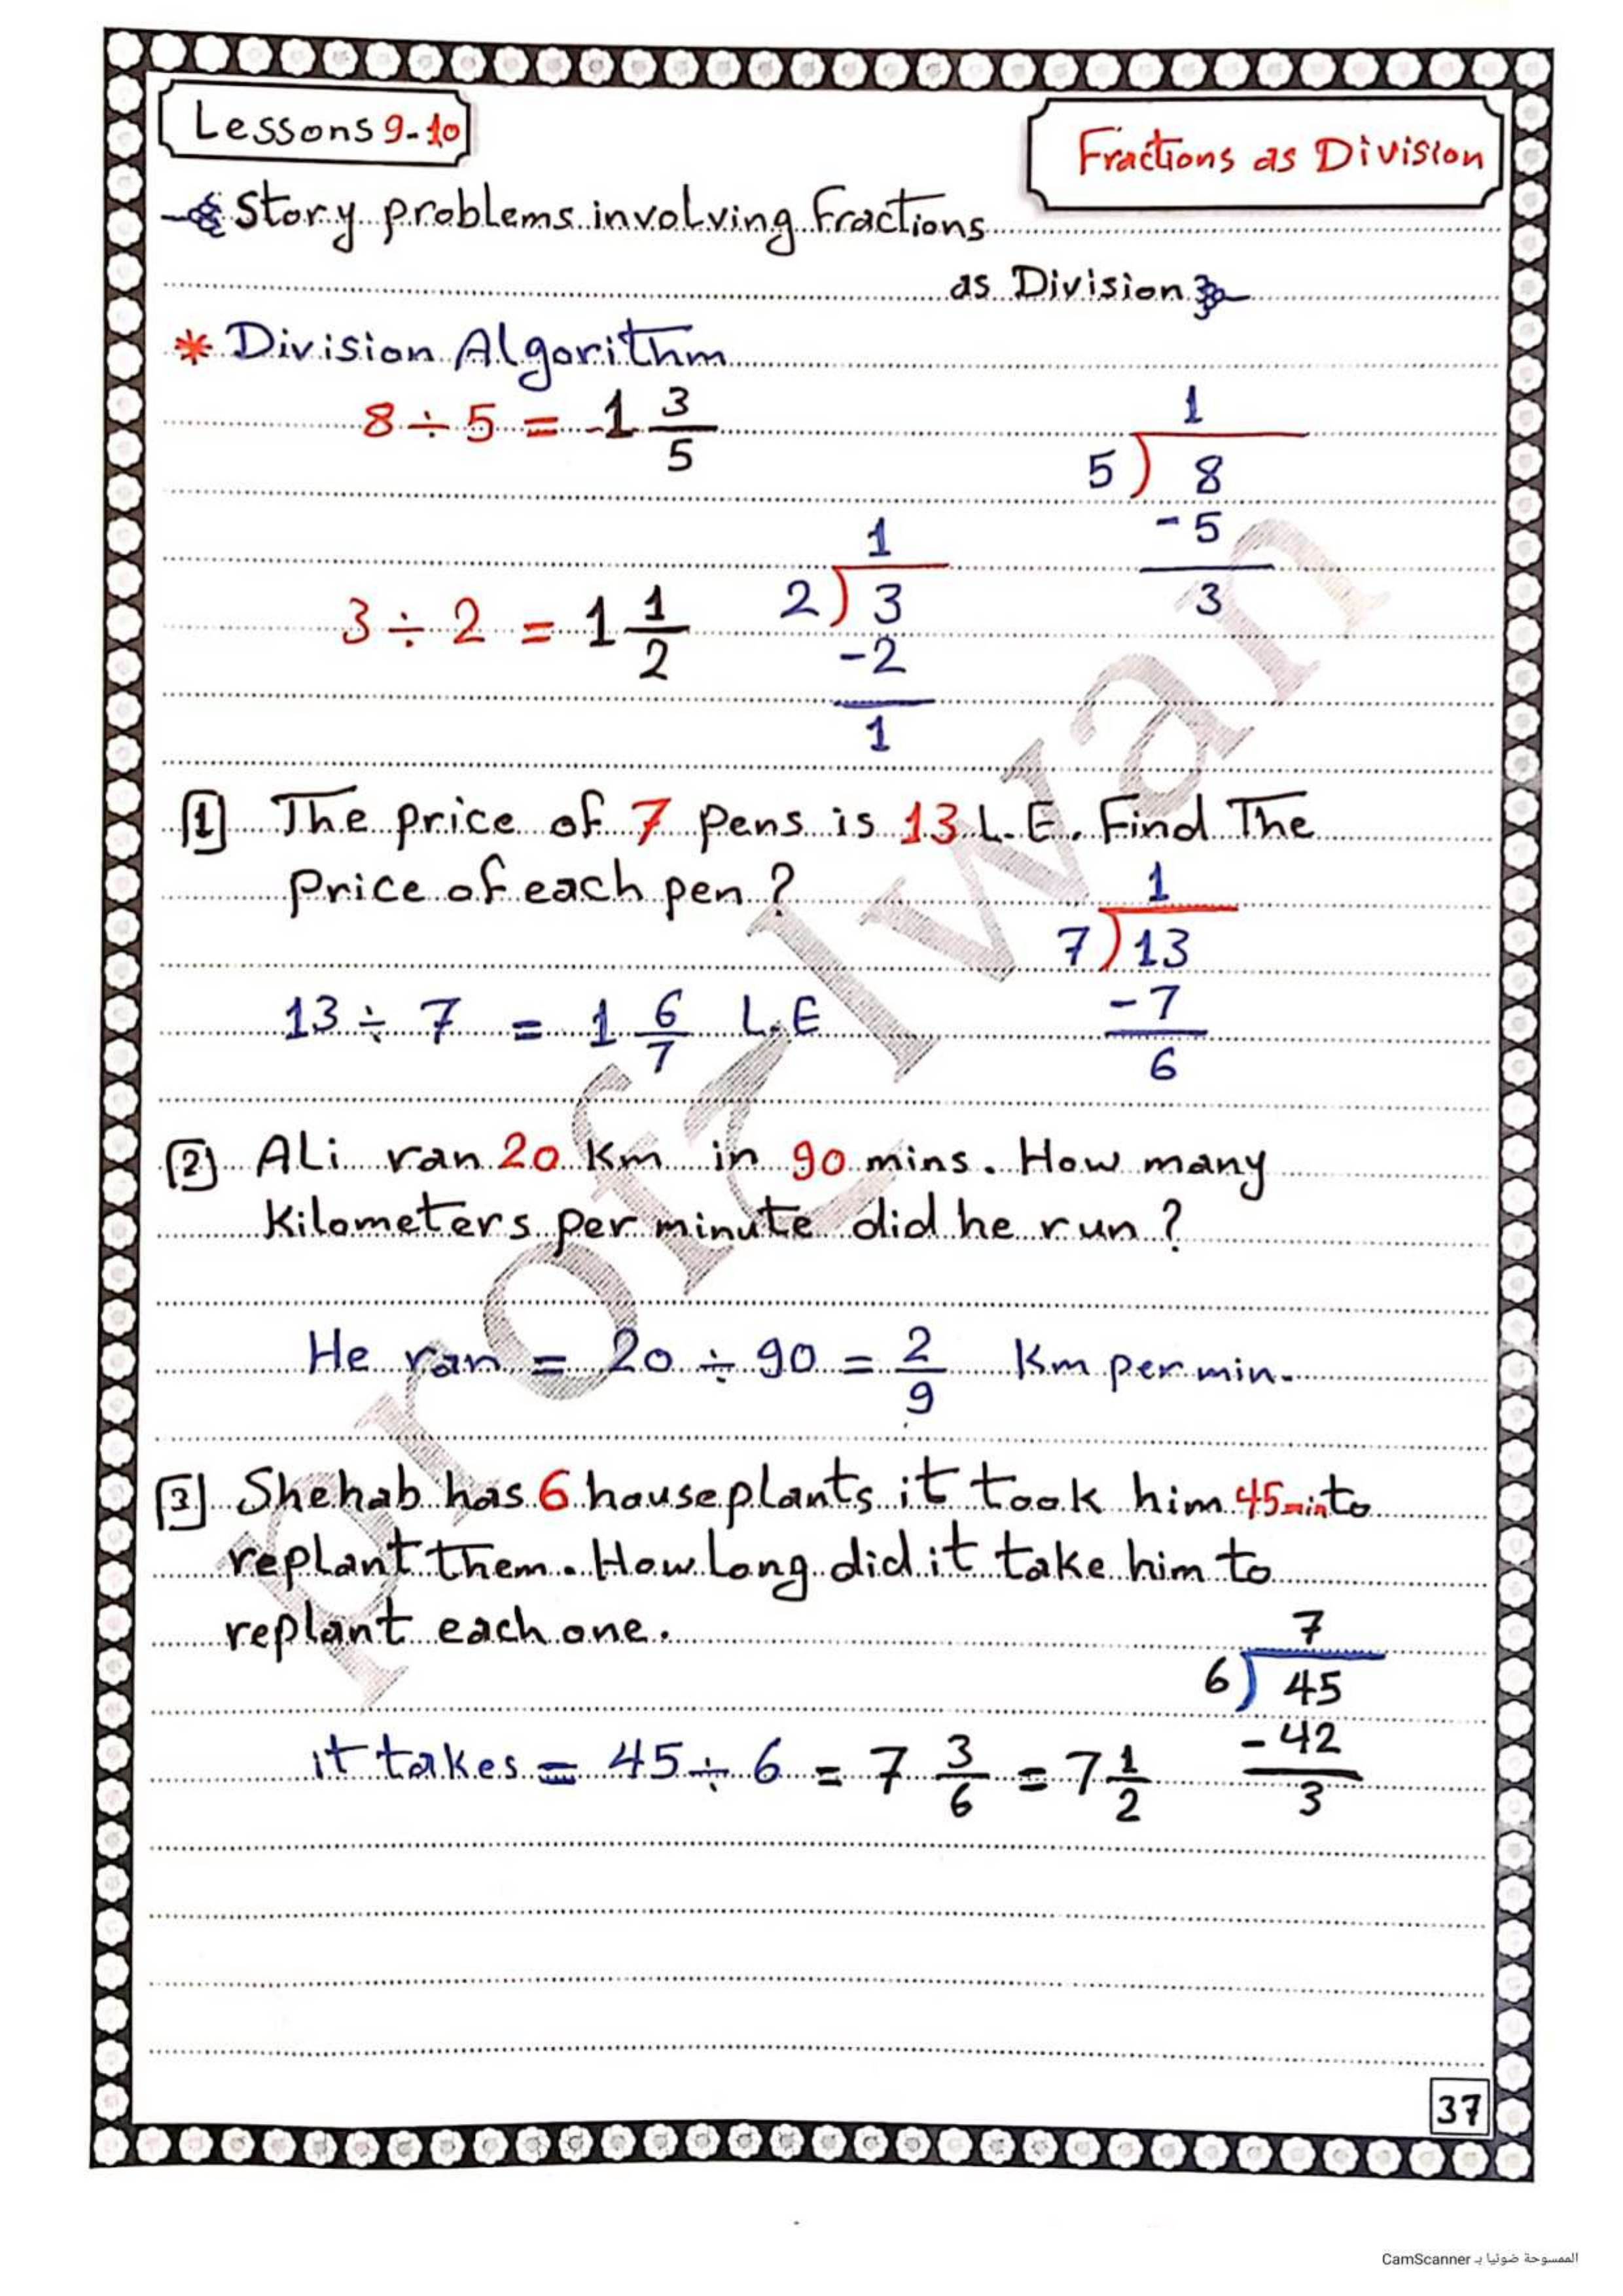 Lessons 9-10
Fractions as Division
Story problems involving Fractions
as Division
* Division Algorithm
8 ÷ 5 = 1 3/5
1
5) 8
- 5
3
3 ÷ 2 = 1 1/2
1
2) 3
-2
1
[1] The price of 7 pens is 13 L.E. Find The
Price of each pen ?
1
7) 13
- 7
6
13 ÷ 7 = 1 6/7 L.E
[2] Ali ran 20 Km in 90 mins. How many
Kilometers per minute did he run ?
He ran = 20 ÷ 90 = 2/9 Km per min.
[3] Shehab has 6 houseplants it took him 45 min to
replant them. How long did it take him to
replant each one.
7
6) 45
- 42
3
it takes = 45 ÷ 6 = 7 3/6 = 7 1/2
37
الممسوحة ضوئيا بـ CamScanner